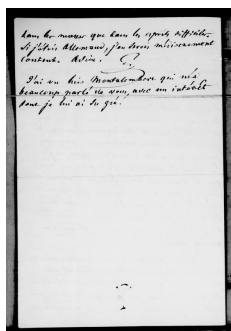 dans les masses que dans les esprits difficiles.
Si j'étais Allemand, j'en serais médiocrement
content. Adieu.
J'ai vu hier Montalembert qui m'a
beaucoup parlé de vous, avec un intérêt
dont je lui ai su gré.